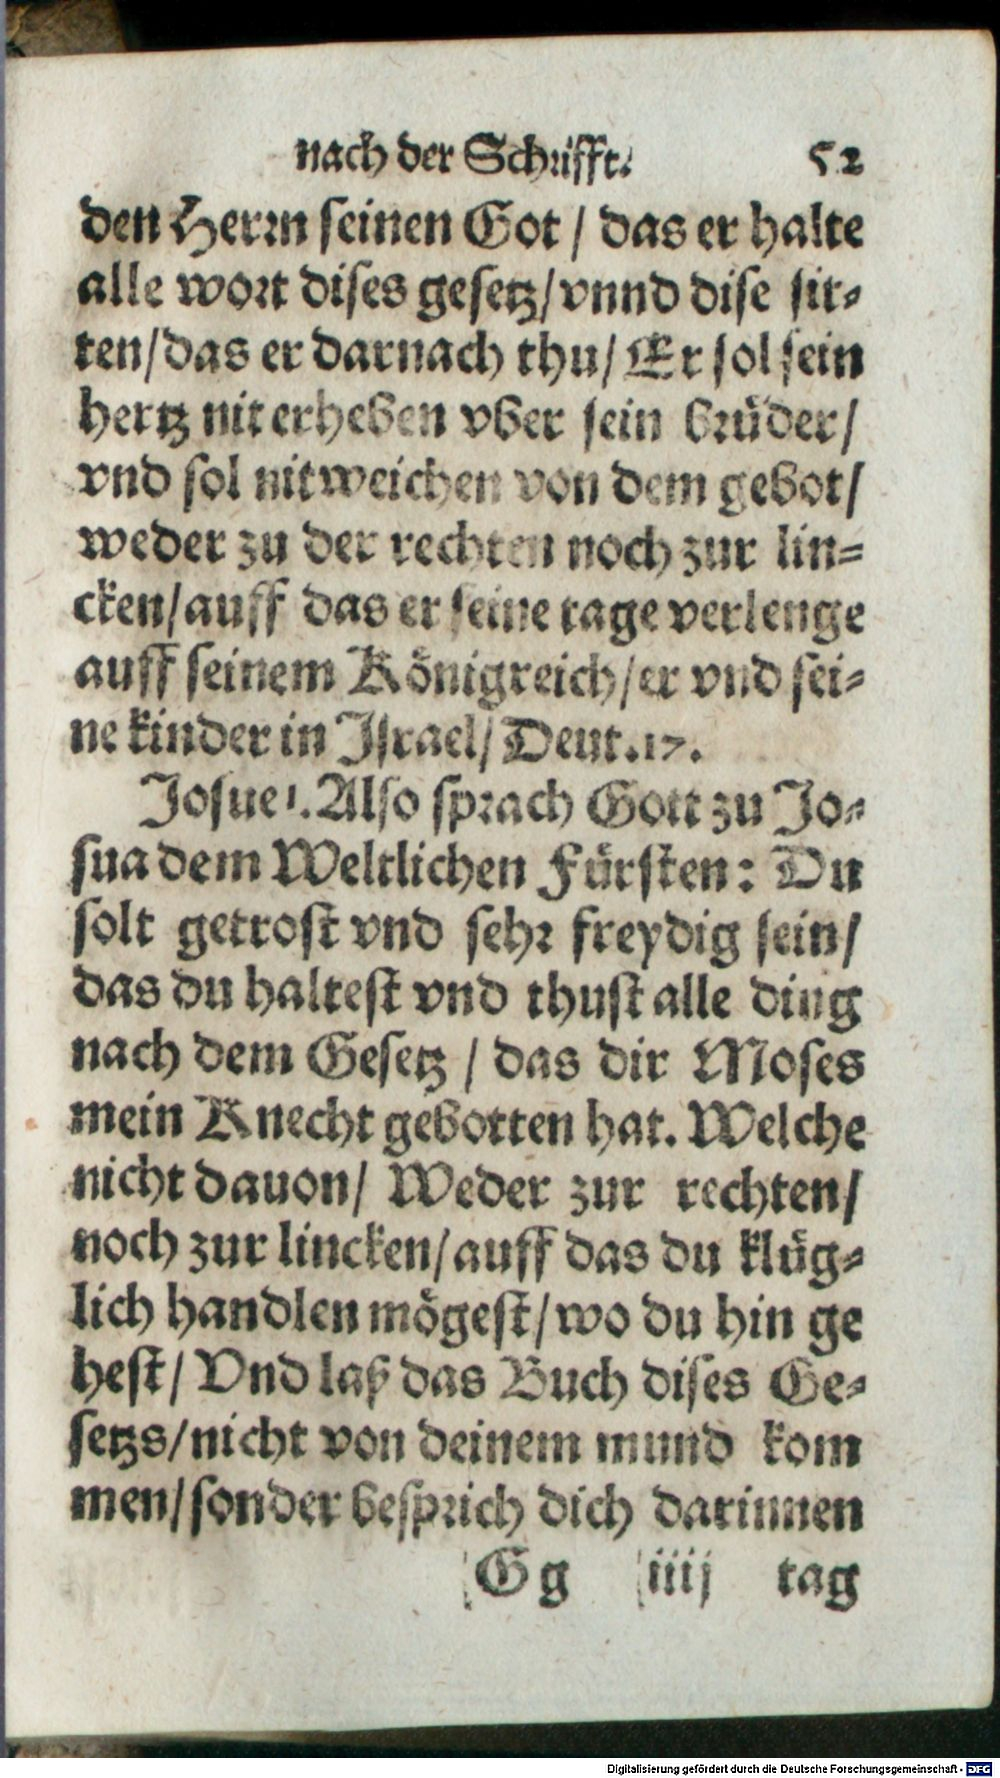 nach der Schrifft. 52
den Herrn seinen Got / das er halte
alle wort dises gesetz/vnnd dise sit-
ten/das er darnach thu/ Er sol sein
hertz nit erheben vber sein brüder/
vnd sol nit weichen von dem gebot/
weder zu der rechten noch zur lin=
cken/auff das er seine tage verlenge
auff seinem Königreich/er vnd sei-
ne kinder in Israel/ Deut.17.
Josue 1. Also sprach Gott zu Jo-
sua dem Weltlichen Fürsten: Du
solt getrost vnd sehr freydig sein/
das du haltest vnd thust alle ding
nach dem Gesetz / das dir Moses
mein Knecht gebotten hat. Welche
nicht dauon/ Weder zur rechten/
noch zur lincken/auff das du klüg-
lich handlen mögest/wo du hin ge
hest/ Vnd laß das Buch dises Ge-
setzs/nicht von deinem mund kom
men/sonder besprich dich darinnen
Gg iiij tag
Digitalisierung gefördert durch die Deutsche Forschungsgemeinschaft - DFG